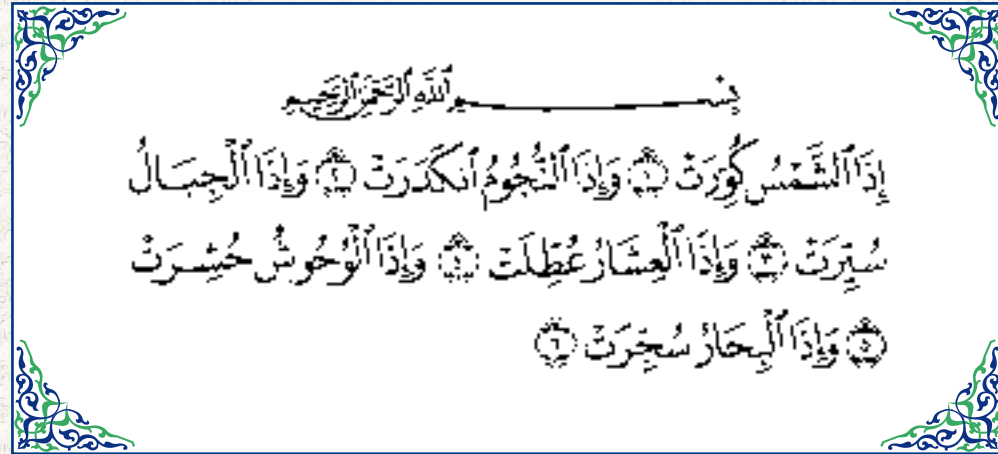 بِسْمِ ٱللَّهِ ٱلرَّحْمَٰنِ ٱلرَّحِيمِ
إِذَا ٱلشَّمْسُ كُوِّرَتْ ١ وَإِذَا ٱلنُّجُومُ ٱنكَدَرَتْ ٢ وَإِذَا ٱلْجِبَالُ
سُيِّرَتْ ٣ وَإِذَا ٱلْعِشَارُ عُطِّلَتْ ٤ وَإِذَا ٱلْوُحُوشُ حُشِرَتْ
٥ وَإِذَا ٱلْبِحَارُ سُجِّرَتْ ٦